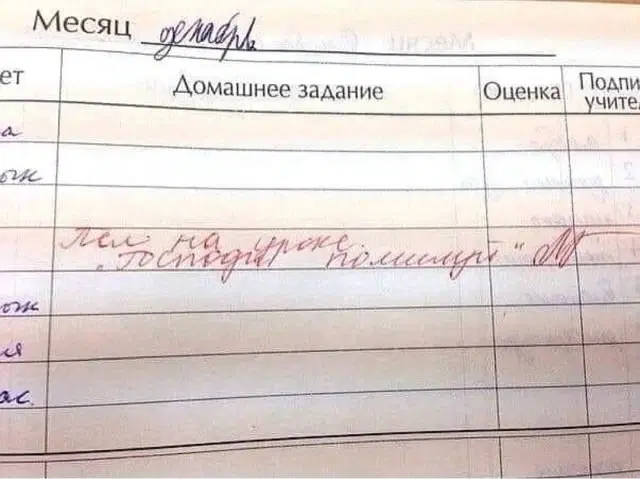 Месяц декабрь
ет Домашнее задание Оценка Подпи учител
а
Пел на уроке
„Господи помилуй"
ож
я